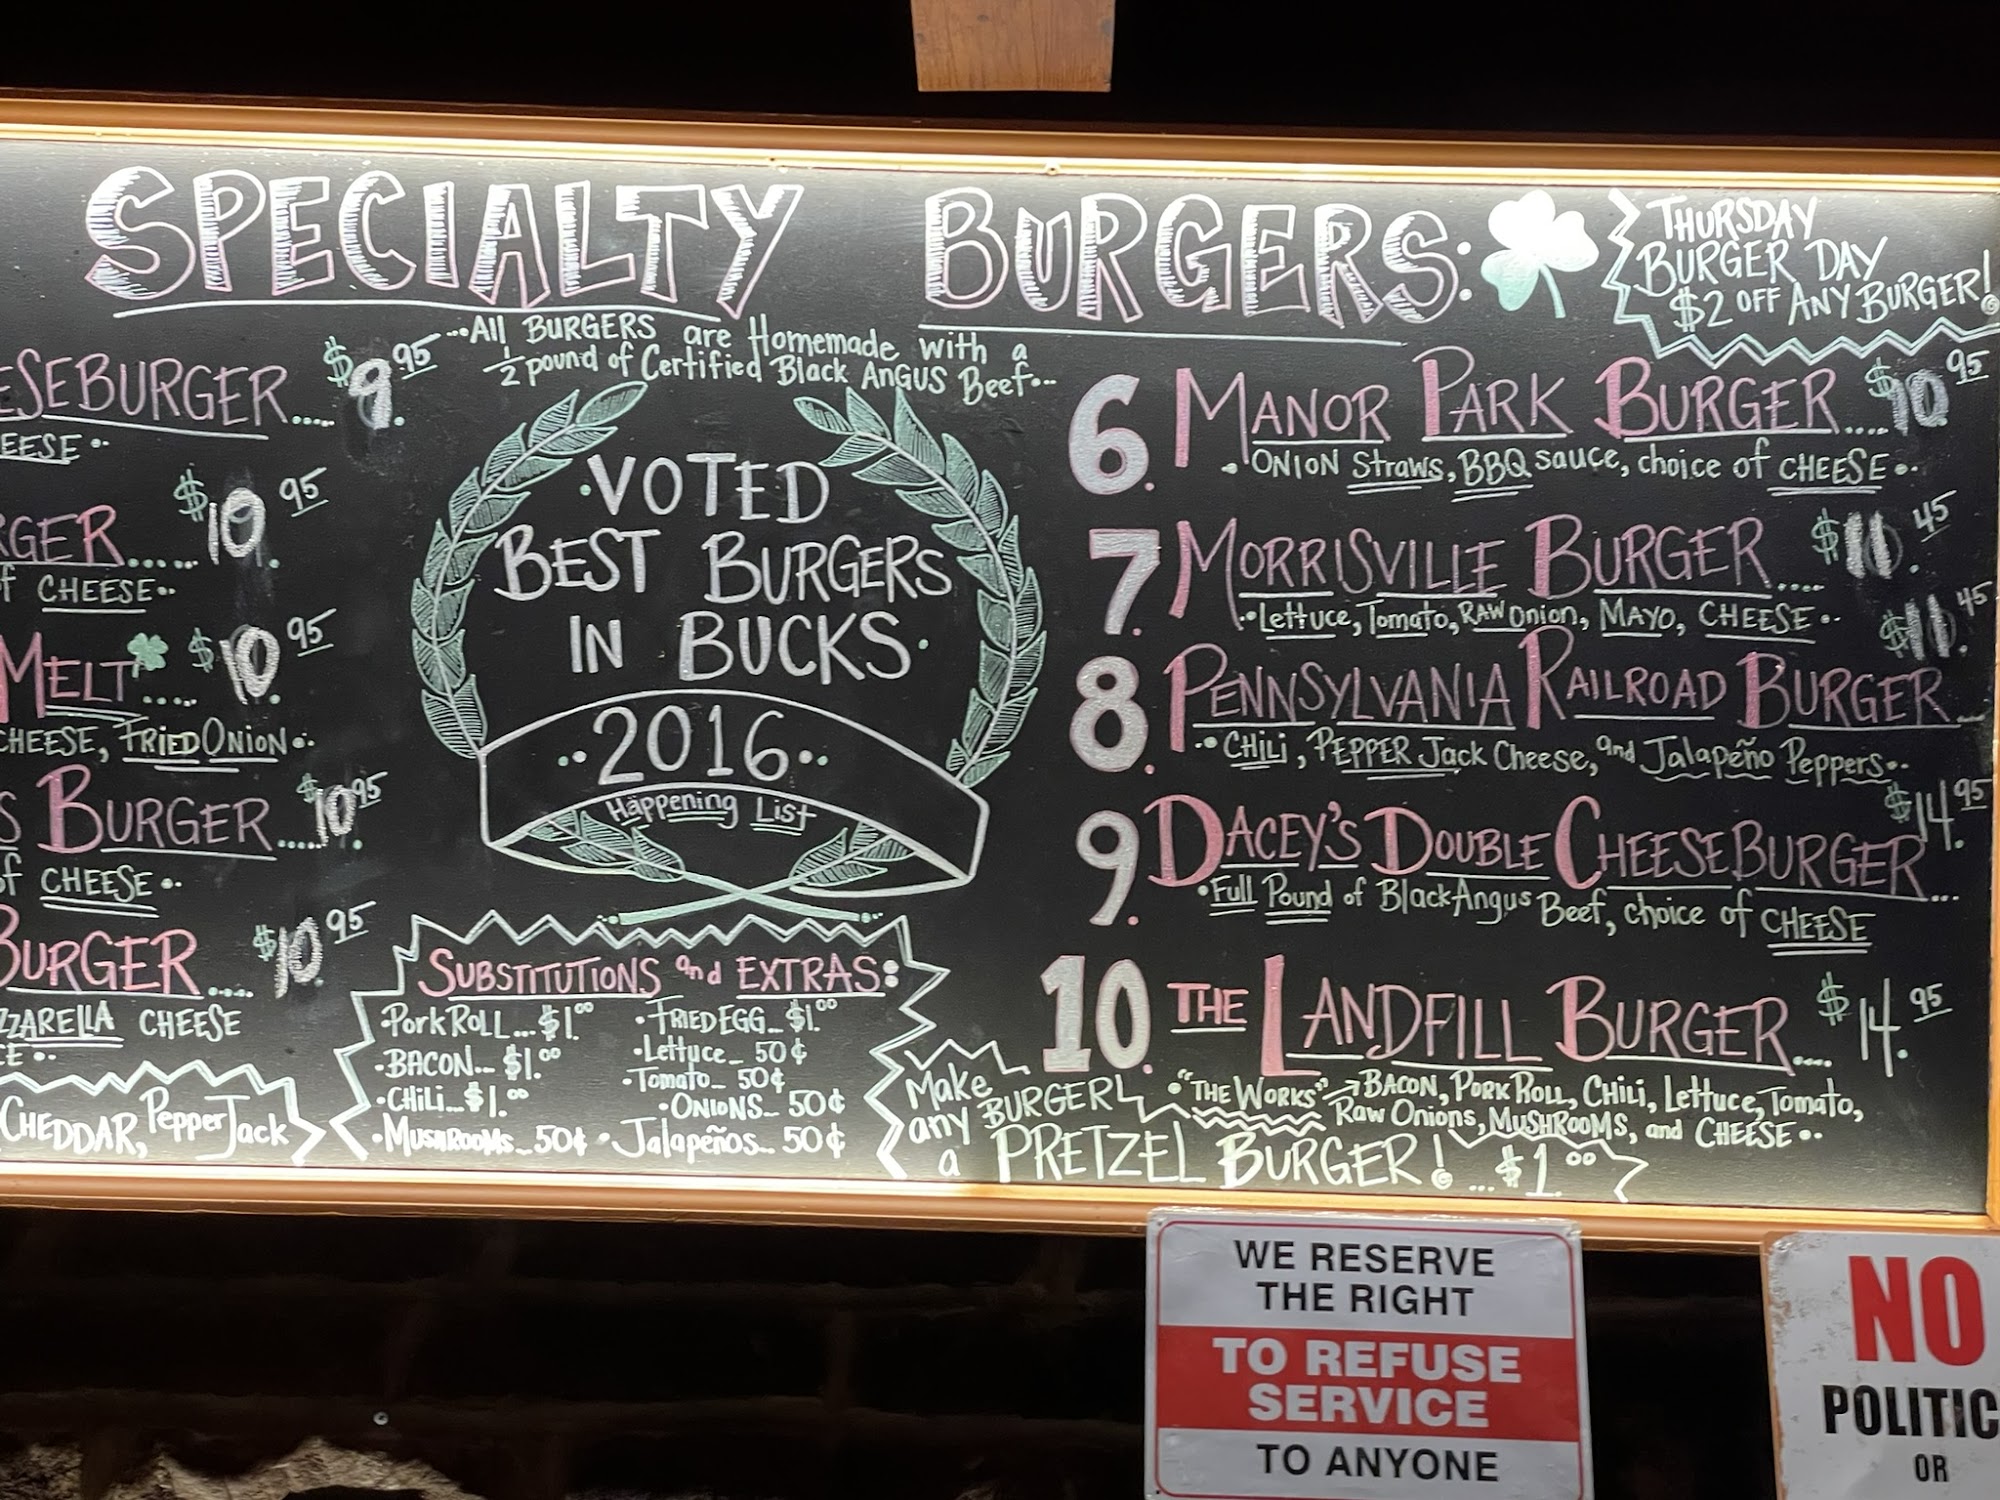 SPECIALTY BURGERS:
THURSDAY
BURGER DAY
$2 OFF ANY BURGER!
...All BURGERS are Homemade with a
1/2 pound of Certified Black ANGUS Beef...
ESEBURGER.... $9.95
EESE
RGER..... $10.95
F CHEESE
MELT.... $10.95
CHEESE, FRIED ONION
S BURGER.... $10.95
of CHEESE
BURGER.... $10.95
ZZARELLA CHEESE
CE
CHEDDAR, Pepper Jack
VOTED
BEST BURGERS
IN BUCKS
2016
Happening List
SUBSTITUTIONS and EXTRAS:
Pork ROLL...$1.00
BACON...$1.00
CHiLi...$1.00
MUSHROOMS...50¢
FRIED EGG...$1.00
Lettuce...50¢
Tomato...50¢
ONIONS...50¢
Jalapeños...50¢
6. MANOR PARK BURGER.... $10.95
ONION Straws, BBQ sauce, choice of CHEESE
7. MORRISVILLE BURGER.... $11.45
Lettuce, Tomato, RAW Onion, MAYO, CHEESE
8. PENNSYLVANIA RAILROAD BURGER... $11.45
CHiLi, PEPPER Jack Cheese, and Jalapeño Peppers
9. DACEY'S DOUBLE CHEESEBURGER... $14.95
Full Pound of Black Angus Beef, choice of CHEESE
10. THE LANDFILL BURGER.... $14.95
"THE WORKS" → BACON, PORK ROLL, CHiLi, Lettuce, Tomato,
Raw Onions, MUSHROOMS, and CHEESE
Make
any BURGER
a PRETZEL BURGER! ...$1.00
WE RESERVE
THE RIGHT
TO REFUSE
SERVICE
TO ANYONE
NO
POLITIC
OR